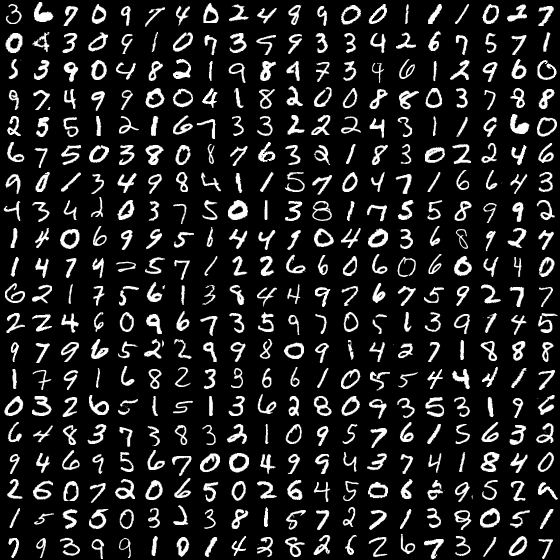 3 6 7 0 9 7 4 0 2 4 8 9 0 0 1 1 1 0 2 7
0 4 3 0 9 1 0 7 3 5 9 3 3 4 2 6 7 5 7 1
5 3 9 0 4 8 2 1 9 8 4 7 3 4 6 1 2 9 6 0
9 7 4 9 9 0 0 4 1 8 2 0 0 8 8 0 3 7 8 8
2 5 5 1 2 1 6 7 3 3 2 2 2 4 3 1 1 9 6 0
6 7 5 0 3 8 0 8 7 6 3 2 1 8 3 0 2 2 4 6
9 0 1 3 4 9 8 4 1 1 5 7 0 4 7 1 6 6 4 3
4 3 4 2 0 3 7 5 0 1 3 8 1 7 5 5 8 9 9 2
1 4 0 6 9 9 5 1 4 4 9 0 4 0 3 6 8 9 2 7
1 4 7 4 5 7 1 2 2 6 6 0 6 0 6 0 4 4 0
6 2 1 7 5 6 1 3 8 4 4 9 7 6 7 5 9 2 7 7
2 2 4 6 0 9 6 7 3 5 9 7 0 5 1 3 9 7 4 5
9 7 9 6 5 2 2 9 9 8 0 9 1 4 2 7 1 8 8 8
1 7 9 1 6 8 2 3 3 6 6 1 0 5 5 4 4 4 1 7
0 3 2 6 5 1 5 1 3 6 2 8 0 9 3 5 3 1 9 6
6 4 8 3 7 3 8 3 2 1 0 9 5 7 6 1 5 6 3 2
9 4 6 9 5 6 7 0 0 4 9 9 4 3 7 4 1 8 4 0
2 6 0 7 2 0 6 5 0 2 6 4 5 0 6 2 9 5 2
1 5 5 5 0 3 2 3 8 1 8 7 2 7 1 3 9 0 5 1
7 9 3 9 9 1 0 1 4 2 8 2 6 2 6 7 3 1 0 7